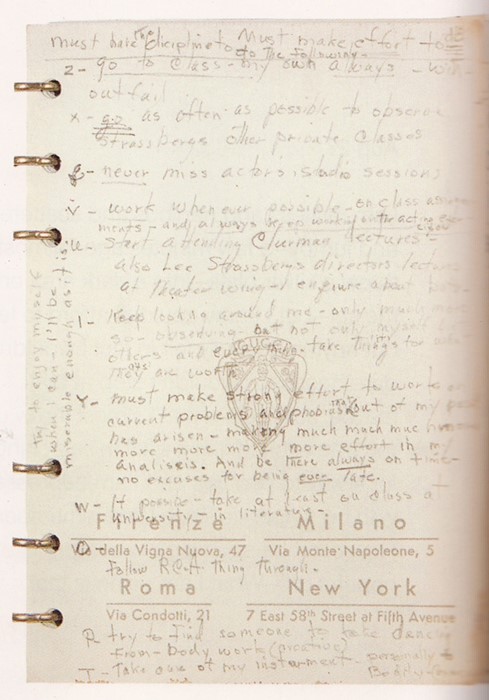 must have the dicipline to do the following -
must make effort to do
z - go to class - my own always - with
out fail
x - go as often as possible to observe
Strassberg's other private classes
g - never miss actor's studio sessions
v - work whenever possible - on class assign
ments - and always keep working on the acting exer
cises
u - start attending Clurman lectures -
also Lee Strassberg's directors lectures
at theater wing - enquire about both -
l - Keep looking around me - only much more
so - observing - but not only myself but
others and everything - take things for what
they are worth
y - must make strong effort to work on
current problems and phobias that out of my past
has arisen - making much much much more
more more more more effort in my
analisis. And be there always on time -
no excuses for being ever late.
w - if possible - take at least one class at
university - in literature -
o - follow RCA thing through.
p - try to find someone to take dancing
from - body work (creative)
t - take care of my instrument - personally &
bodily
try to enjoy myself
when I can - I'll be
miserable enough as it is.
GUCCI
Firenze
Via della Vigna Nuova, 47
Milano
Via Monte Napoleone, 5
Roma
Via Condotti, 21
New York
7 East 58th Street at Fifth Avenue